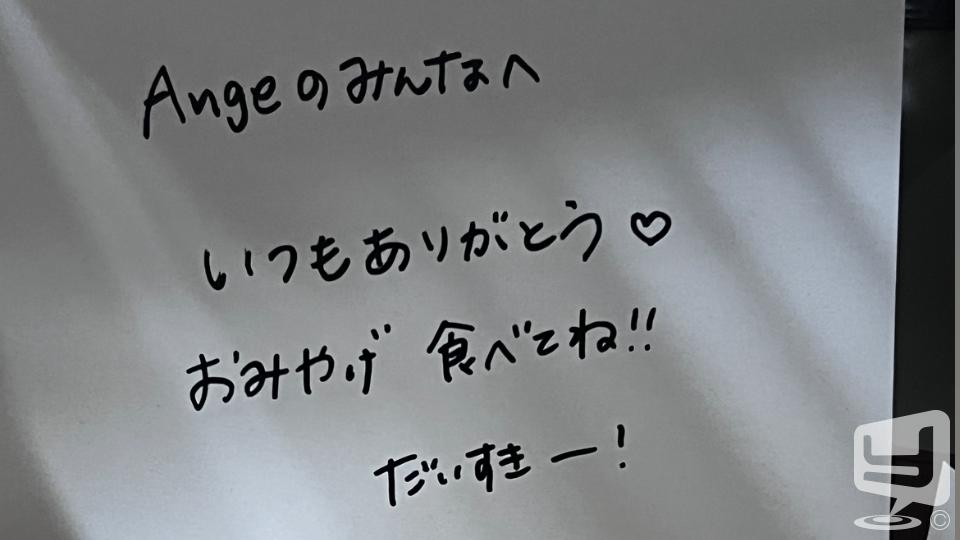 Angeのみんなへ
いつもありがとう♡
おみやげ 食べてね!!
だいすきー!